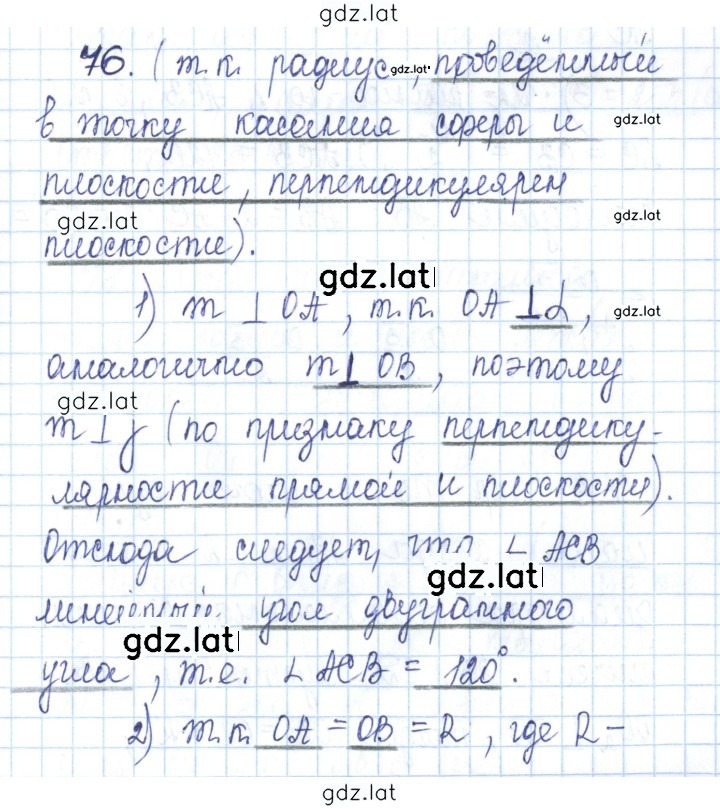 gdz.lat
76. (т.к. радиус gdz.lat, проведённый
в точку касания сферы и gdz.lat
плоскости, перпендикулярен
gdz.lat gdz.lat
плоскости).
gdz.lat
1) m ⊥ OA, т.к. OA ⊥ α, gdz.lat
аналогично m ⊥ OB, поэтому
gdz.lat
m ⊥ γ (по признаку перпендику-
лярности прямой и плоскости).
Отсюда следует, что ∠ ACB
gdz.lat
линейный угол двугранного
gdz.lat
угла, т.е. ∠ ACB = 120°.
2) т.к. OA = OB = R, где R –
gdz.lat